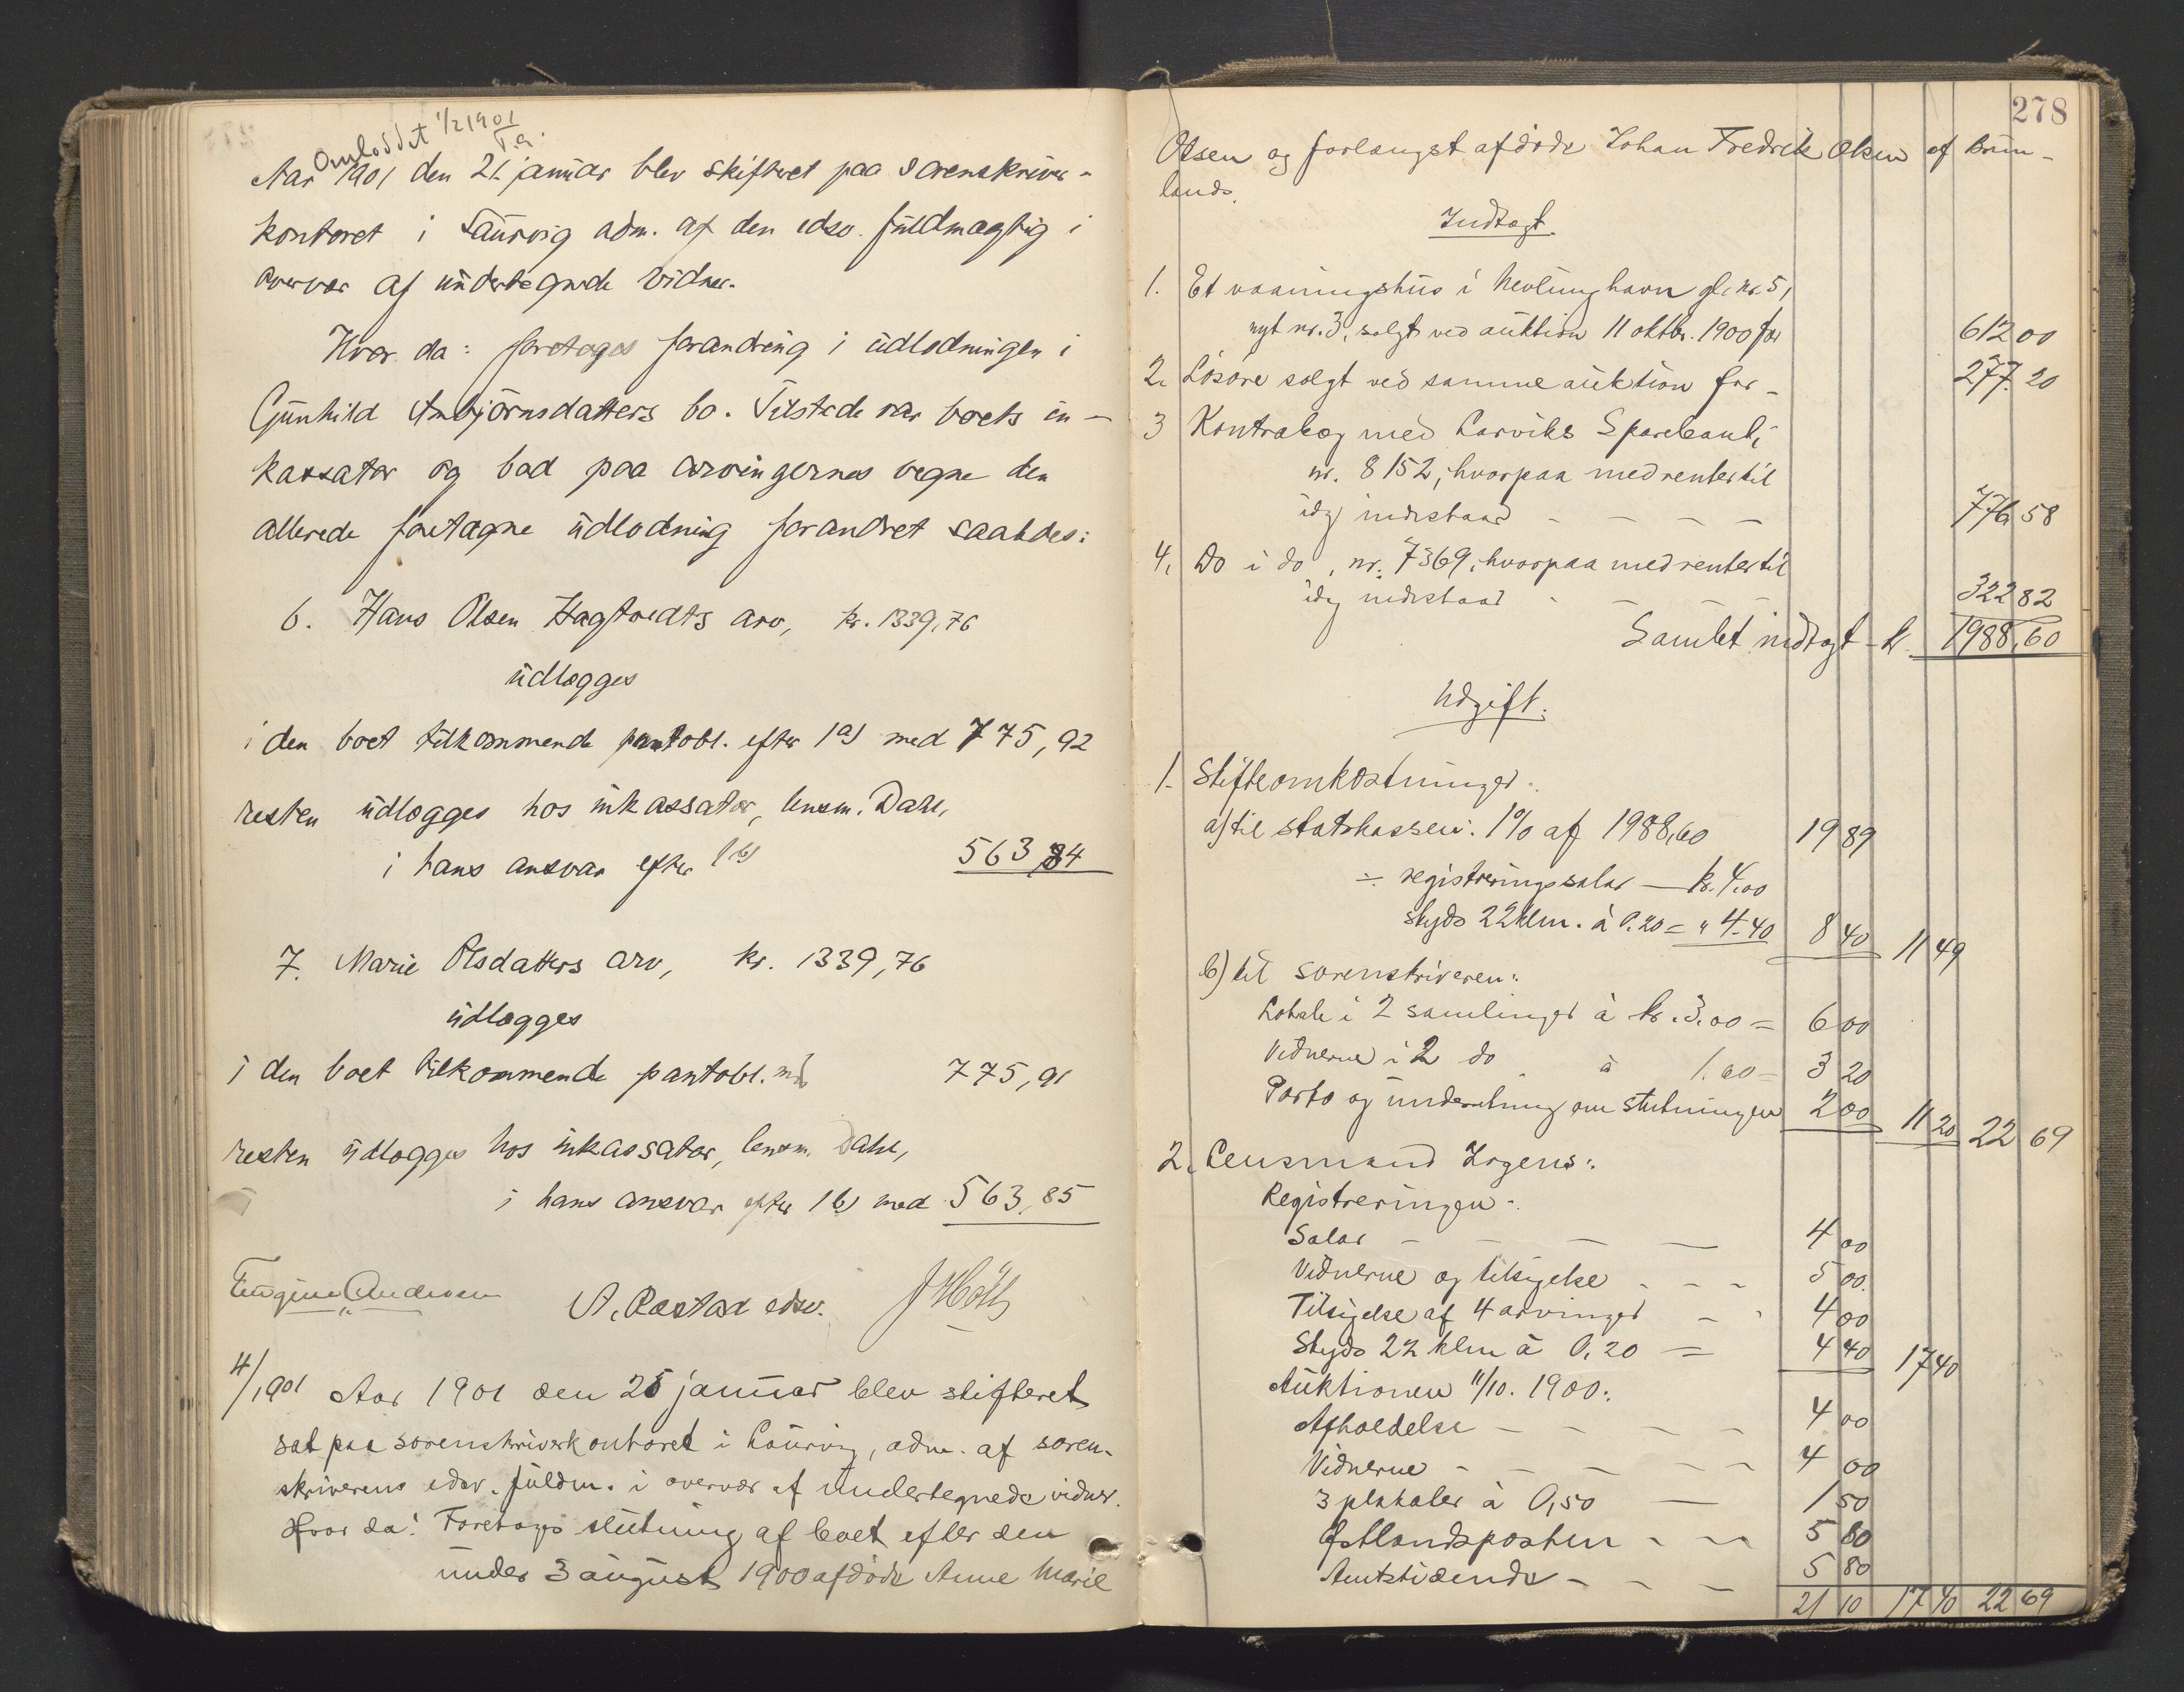 Omloddet 1/2 1901
Aar 1901 den 21 januar blev skifteret paa sorenskriver-
kontoret i Laurvig adm. af den edsv. fuldmægtig i
overvær af undertegnede vidner.
Hvor da: foretoges forandring i udlodningen i
Gunhild Anbjörnsdatters bo. Tilstede var boets in-
kassator og bad paa arvingernes vegne den
allerede foretagne udlodning forandret saaledes:
6. Hans Olsen Hagtvedts arv, kr. 1339,76
udlægges
i den boet tilkommende pantobl. efter 1a) med 775,92
resten udlægges hos inkassator, lensm. Dahl,
i hans ansvar efter 1b) 563,84
7. Marie Olsdatters arv, kr. 1339,76
udlægges
i den boet tilkommende pantobl. med 775,91
resten udlægges hos inkassator, lensm. Dahl,
i hans ansvar efter 1b) med 563,85
Eugine Andersen A. Rastad edsv. J Holtz
4/1901 Aar 1901 den 25 januar blev skifteret
sat paa sorenskriverkontoret i Laurvig, adm. af soren-
skriverens edsv. fuldm. i overvær af undertegnede vidner.
Hvor da: Foretoges slutning af boet efter den
under 3 august 1900 afdöde Anne Marie
278
Olsen og forlængst afdöde Johan Fredrik Olsen af Brun-
lands.
Indtægt.
1. Et vaaningshus i Nevlunghavn gl. nr. 5,
nyt nr. 3, solgt ved auktion 11 oktbr. 1900 for 612 00
2. Lösöre solgt ved samme auktion for - 277.20
3 Kontrabog med Larviks Sparebank,
nr. 8152, hvorpaa med renter til
idag indestaar - - - - 776 58
4. Do i do, nr. 7369, hvorpaa med renter til
idag indestaar - - - - 322 82
Samlet indtægt - kr. 1988,60
Udgift.
1. Skifteomkostninger:
a) til statskassen: 1% af 1988,60 19 89
÷ registreringssalar — kr. 4.00
skyds 22 klm. à 0.20 = " 4.40 8 40 11 49
b) til sorenskriveren:
Lokale i 2 samlinger à kr. 3.00 = 6 00
Vidnerne i 2 do à 1.60 = 3 20
Porto og underretning om slutningen 2 00 11 20 22 69
2. Lensmand Jrgens:
Registreringen:
Salar - - - — 4 00
Vidnerne og tilsigelse - - - 5 00.
Tilsigelse af 4 arvinger - - 4 00
Skyds 22 klm à 0,20 = 4 40 17 40
Auktionen 11/10. 1900:
Afholdelse - - - - - 4 00
Vidnerne - - - - - 4 00
3 plakater à 0,50 — 1 50
Østlandsposten - - - 5 80
Amtstidende - - - 5 80
21 10 17 40 22 69